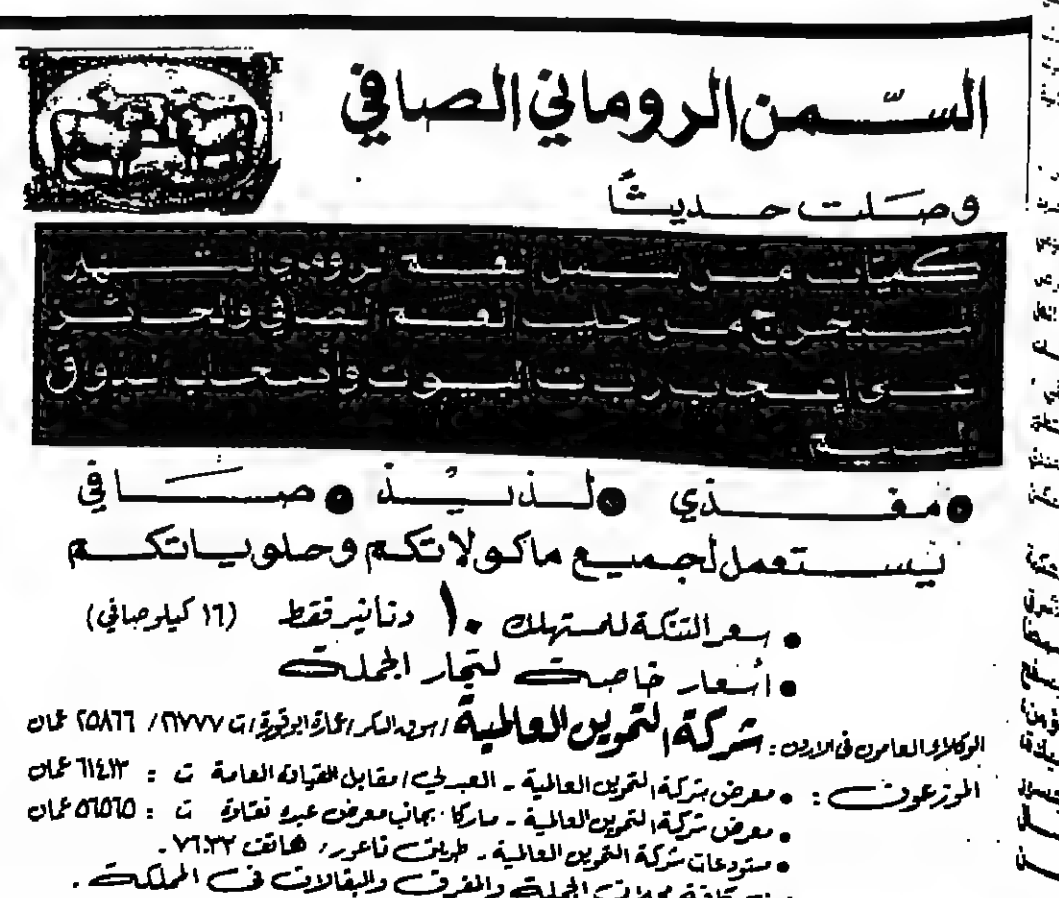 السّمن الروماني الصافي
وصلت حديثًا
كميات من سمن الغنم الروماني الشهير
المستخرج من حليب الغنم الصافي والحائز
على إعجاب ربات البيوت وأصحاب الذوق
السليم
• مغذي • لذيذ • صافي
يستعمل لجميع ماكولاتكم وحلوياتكم
• سعر التنكة للمستهلك ١٠ دنانير فقط (١٦ كيلو صافي)
• أسعار خاصة لتجار الجملة
الوكلاء العامون في الاردن: شركة التموين العالمية / سوق السكر / عمارة ابو قورة / ت ٢١٧٧٧ / ٢٥٨٦٦ عمان
الموزعون: • معرض شركة التموين العالمية - العبدلي / مقابل القيادة العامة ت: ٦١٤١٣ عمان
• معرض شركة التموين العالمية - ماركا بجانب معرض عبده ت: ٥٦٥٦٥ عمان
• مستودعات شركة التموين العالمية - طريق ناعور، هاتف ٧٦٠٣٢ -
كافة محلات الجملة والمفرق والبقالات في المملكة.